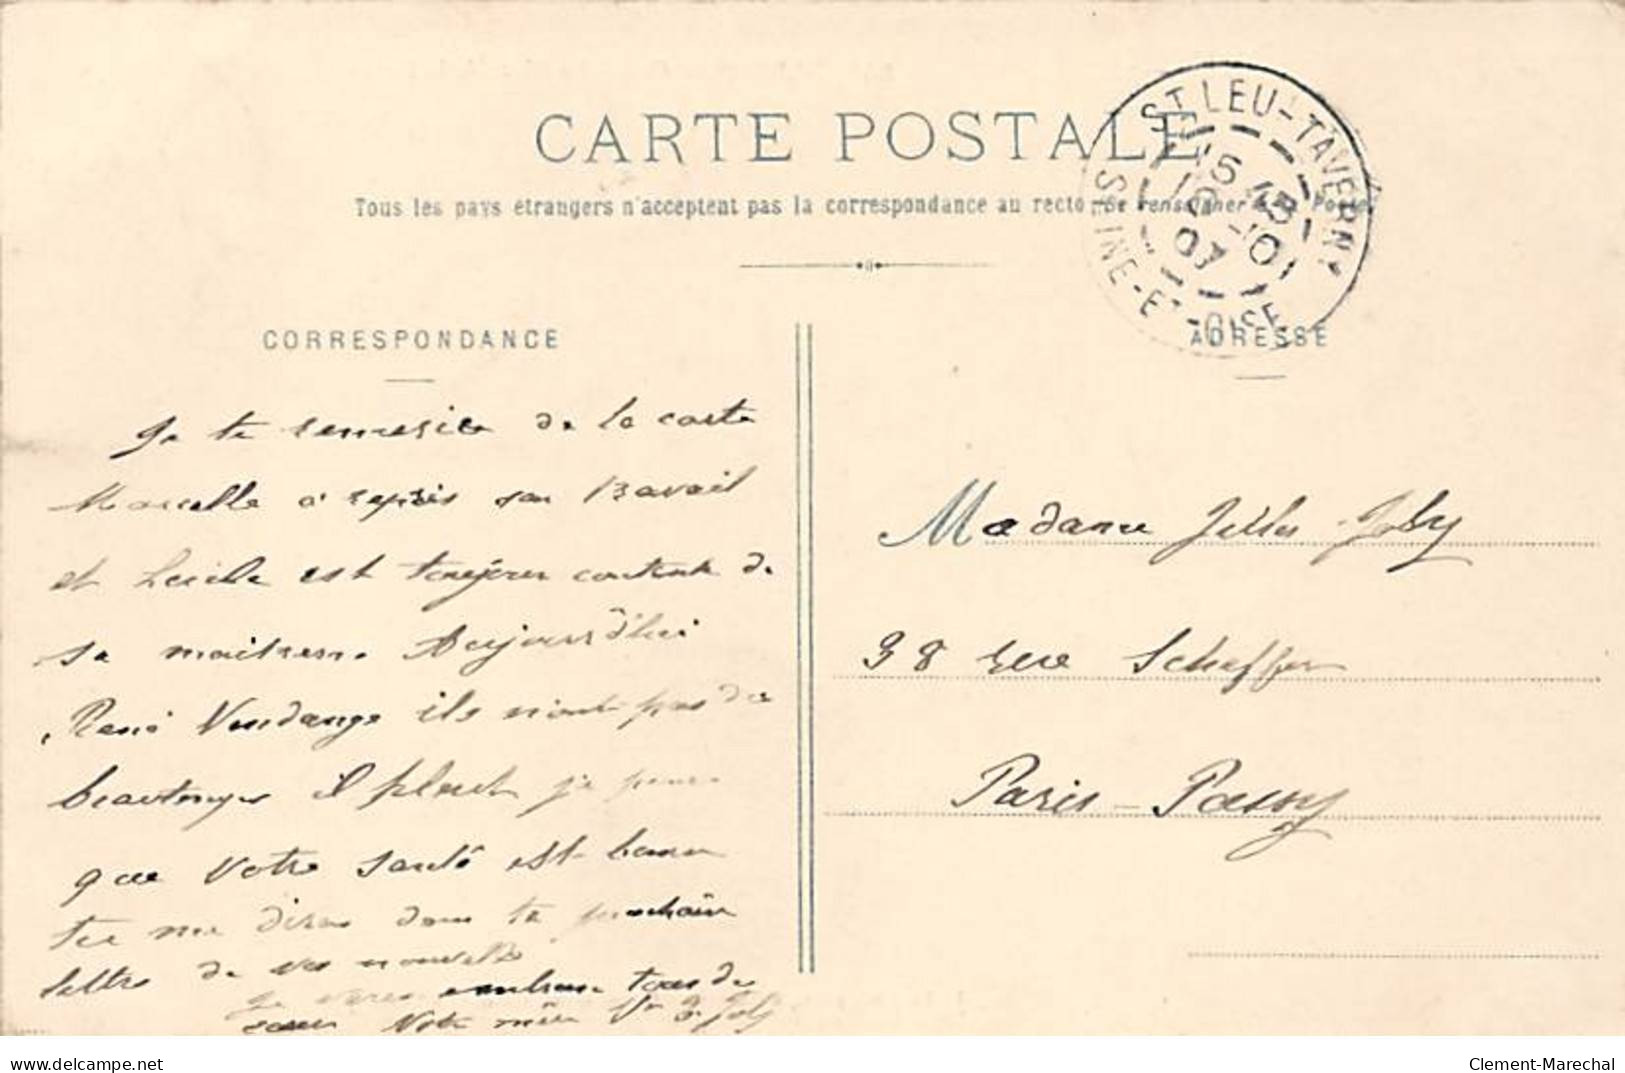 CARTE POSTALE
Tous les pays étrangers n'acceptent pas la correspondance au recto (Se renseigner à la Poste)
ST LEU-TAVERNY
SEINE-ET-OISE
15 45
12 -10
07
CORRESPONDANCE
ADRESSE
Je te remersie de la carte
Marcelle a repris son travail
et Lucile est toujours contente de
sa maitresse. Aujourd'hui
René Vendange ils n'ont pas du
beautemps il pleut je pense
que votre santé est bonne
tu me diras dans ta prochaine
lettre de vos nouvelles
Je vous embrasse tous de
coeur Votre mère Vve J. Joly
Madame Jules Joly
38 rue Scheffer
Paris - Passy
delcampe.net
Clement-Marechal